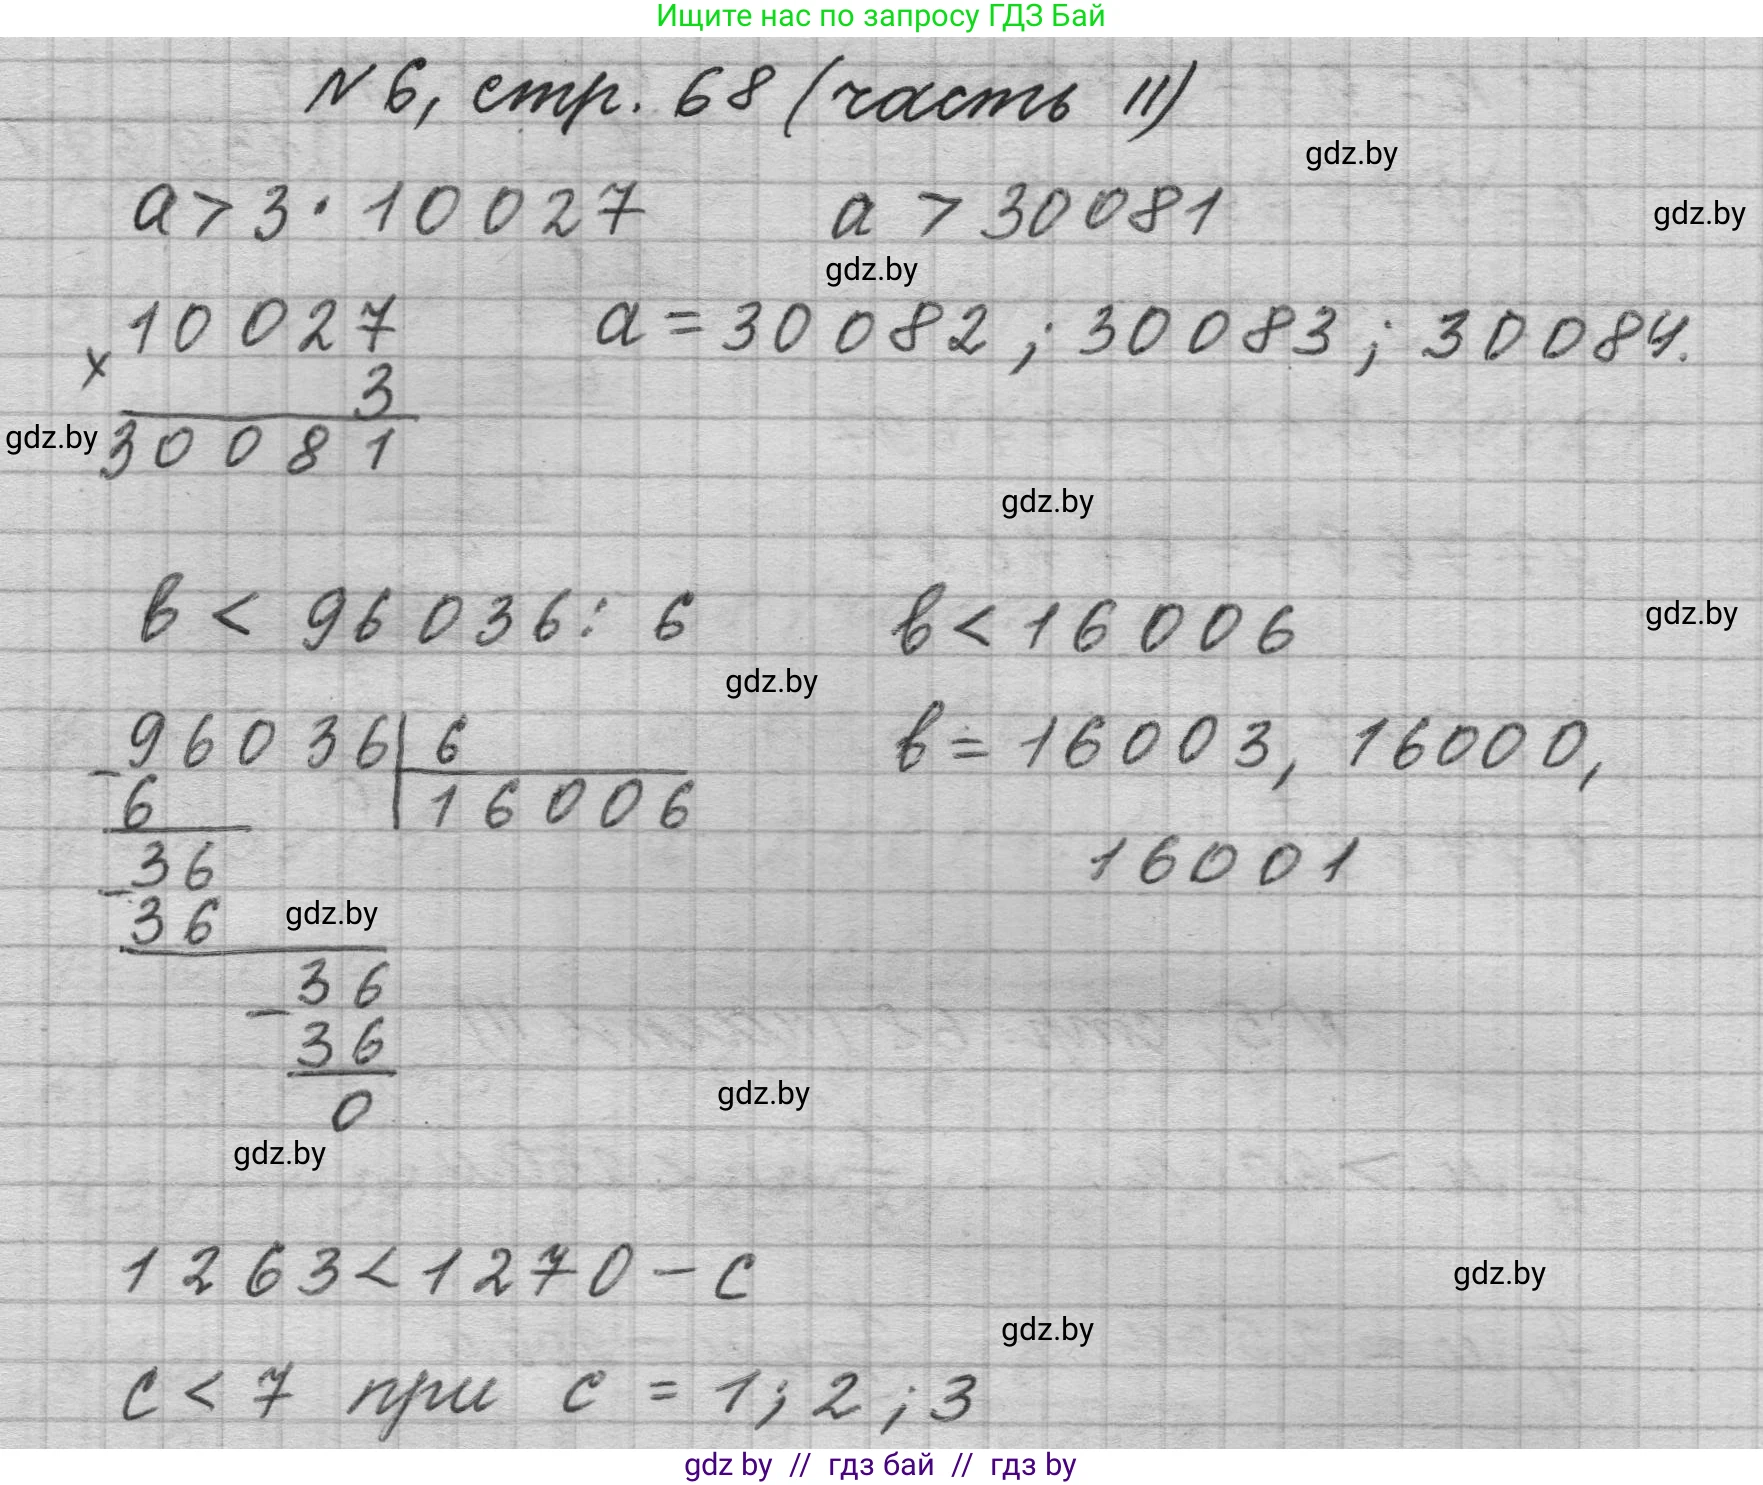 Ищите нас по запросу ГДЗ Бай
№ 6, стр. 68 (часть II)
gdz.by
a > 3 · 10027 a > 30081
gdz.by
gdz.by
10027 a = 30082 ; 30083 ; 30084.
x 3
gdz.by
30081
gdz.by
в < 96036 : 6 в < 16006
gdz.by
gdz.by
96036 | 6 в = 16003, 16000,
- 6 16006
16001
- 36
36
gdz.by
- 36
36
0
gdz.by
gdz.by
1263 < 1270 - c
gdz.by
gdz.by
c < 7 при c = 1 ; 2 ; 3
gdz by // гдз бай // гдз by